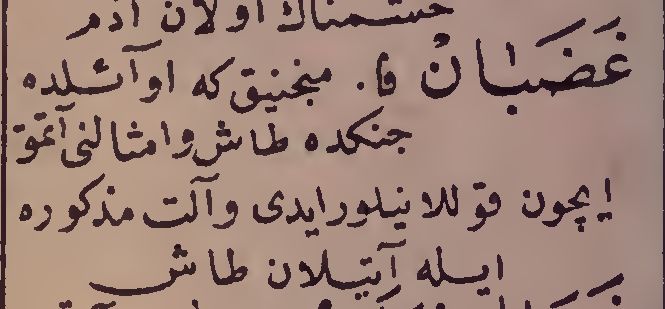 خشمناك اولان آدم
غَضَبَانْ فا. منجنيق كه اوآئلده
جنكده طاش وامثالنى آتمق
ايچون قوللانيلور ايدى وآلت مذكوره
ايله آتيلان طاش